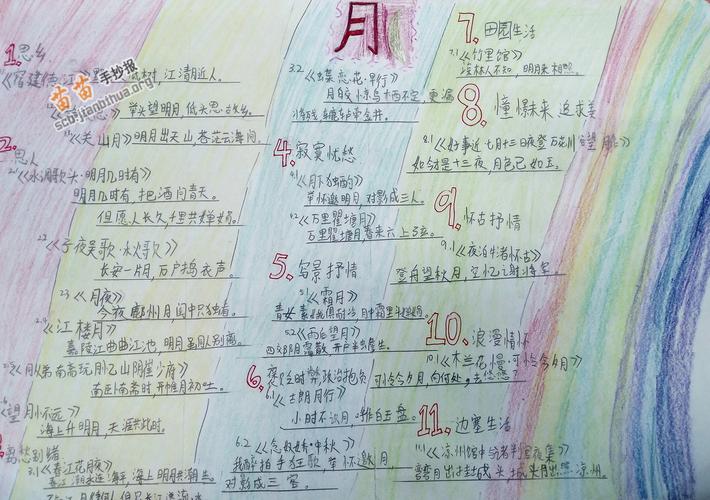 月
1.思乡
《宿建德江》野旷天低树，江清月近人。
举头望明月，低头思故乡。
《关山月》明月出天山，苍茫云海间。
2.思人
《水调歌头·明月几时有》
明月几时有，把酒问青天。
但愿人长久，千里共婵娟。
2.2
《子夜吴歌·秋歌》
长安一片月，万户捣衣声。
2.3《月夜》
今夜鄜州月，闺中只独看。
2.4
《江楼月》
嘉陵江曲曲江池，明月虽同人别离。
《望月怀远》
海上升明月，天涯共此时。
3.1《春江花月夜》
春江潮水连海平，海上明月共潮生。
3.2《蝶恋花·早行》
月皎惊乌栖不定，更漏
4.寂寞忧愁
4.1《月下独酌》
举杯邀明月，对影成三人。
4.2《万里瞿塘月》
万里瞿塘月，春来六上弦。
5.写景抒情
5.1《霜月》
5.2《雨后望月》
四郊阴霭散，开户半蟾生。
6.
6.1《古朗月行》
小时不识月，呼作白玉盘。
6.2《念奴娇·中秋》
我醉拍手狂歌，举杯邀月，
对影成三客。
7.田园生活
7.1《竹里馆》
深林人不知，明月来相照。
8.憧憬未来 追求美
8.1《好事近·七月十三日夜登万花川谷望月作》
如今才是十三夜，月色已如玉。
9.怀古抒情
9.1《夜泊牛渚怀古》
登舟望秋月，空忆谢将军。
10.浪漫情怀
10.1《木兰花慢·可怜今夕月》
可怜今夕月，向何处，去悠悠？
11.边塞生活
11.1《凉州馆中与诸判官夜集》
弯弯月出挂城头，城头月出照凉州。
苗苗手抄报